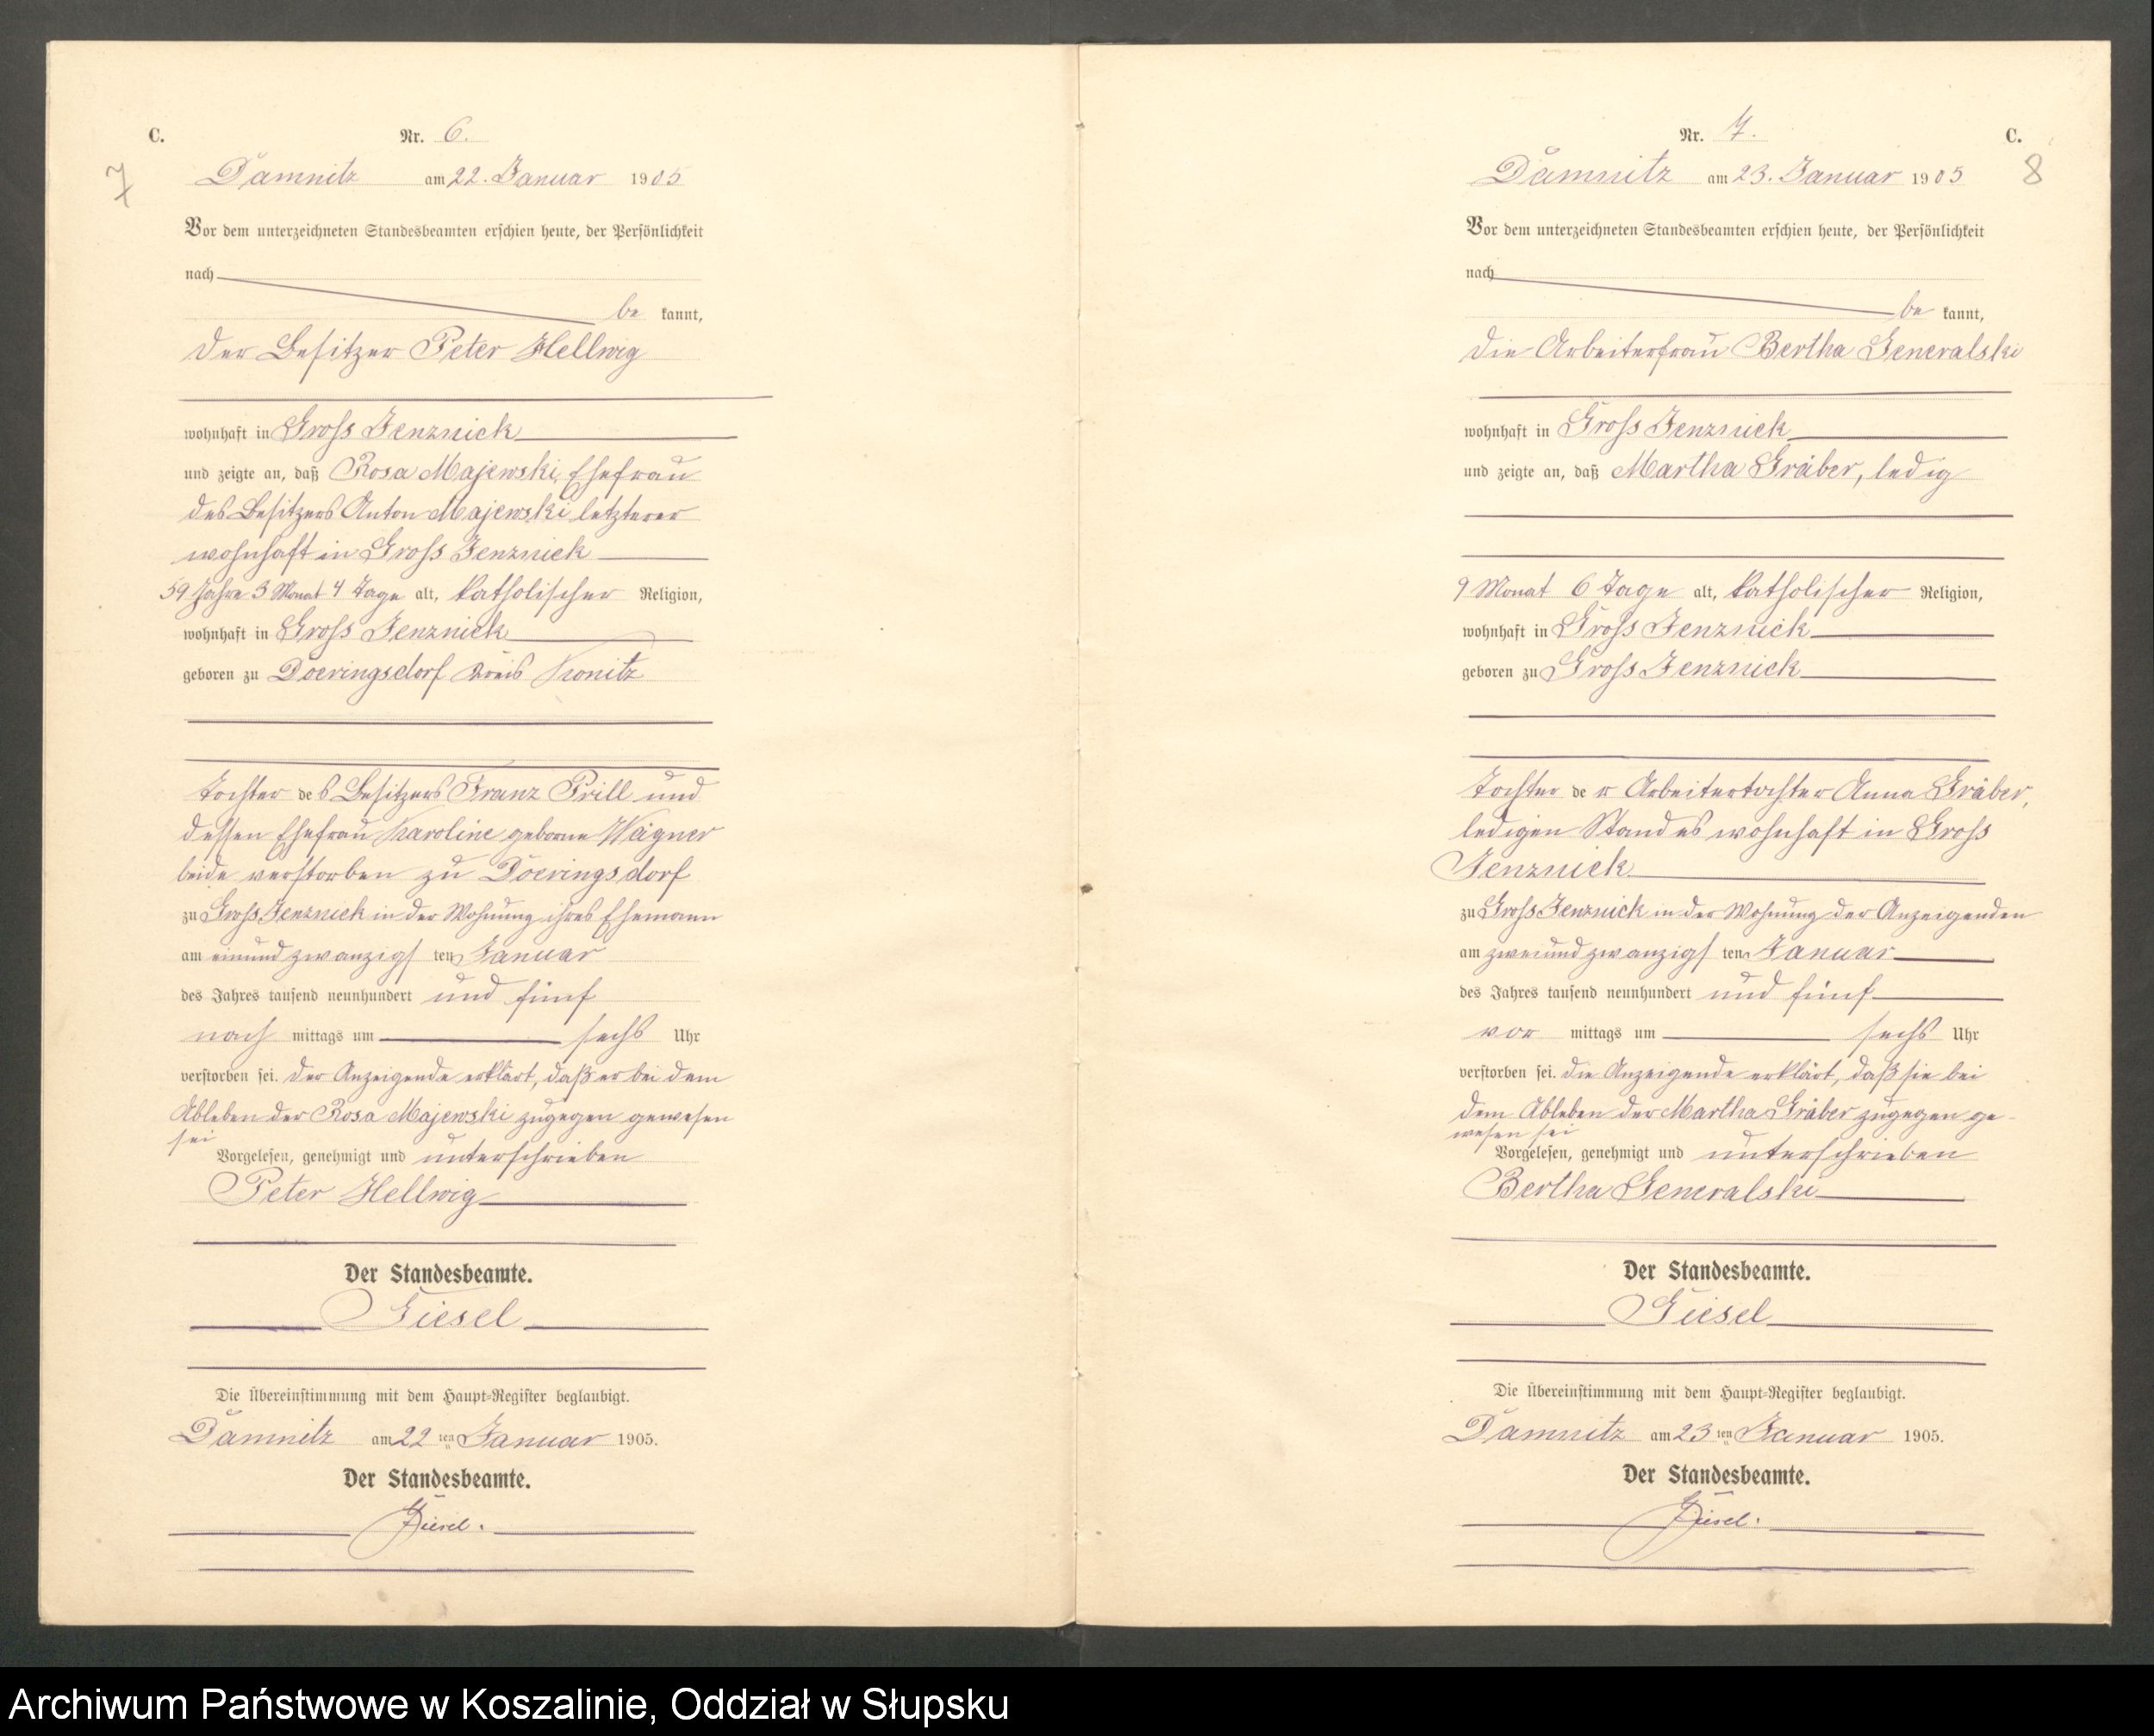 C.
Nr. 6.
7
Damnitz am 22. Januar 1905
Vor dem unterzeichneten Standesbeamten erschien heute, der Persönlichkeit
nach
be kannt,
der Besitzer Peter Hellwig
wohnhaft in Gross Jenznick
und zeigte an, daß Rosa Majewski, Ehefrau
des Besitzers Anton Majewski letzterer
wohnhaft in Gross Jenznick
59 Jahre 3 Monat 4 Tage alt, katholischer Religion,
wohnhaft in Gross Jenznick
geboren zu Doeringsdorf Kreis Konitz
Tochter des Besitzers Franz Prill und
dessen Ehefrau Karoline geborne Wagner
beide verstorben zu Doeringsdorf
zu Gross Jenznick in der Wohnung ihres Ehemann
am einundzwanzigsten Januar
des Jahres tausend neunhundert und fünf
nach mittags um sechs Uhr
verstorben sei. Der Anzeigende erklärt, daß er bei dem
Ableben der Rosa Majewski zugegen gewesen
sei
Vorgelesen, genehmigt und unterschrieben
Peter Hellwig
Der Standesbeamte.
Giesel
Die Übereinstimmung mit dem Haupt-Register beglaubigt.
Damnitz am 22 ten Januar 1905.
Der Standesbeamte.
Giesel.
Nr. 7.
C.
8
Damnitz am 23. Januar 1905
Vor dem unterzeichneten Standesbeamten erschien heute, der Persönlichkeit
nach
be kannt,
die Arbeiterfrau Bertha Generalski
wohnhaft in Gross Jenznick
und zeigte an, daß Martha Gräber, ledig
9 Monat 6 Tage alt, katholischer Religion,
wohnhaft in Gross Jenznick
geboren zu Gross Jenznick
Tochter der Arbeitertochter Anna Gräber,
ledigen Standes wohnhaft in Gross
Jenznick
zu Gross Jenznick in der Wohnung der Anzeigenden
am zweiundzwanzigsten Januar
des Jahres tausend neunhundert und fünf
vor mittags um sechs Uhr
verstorben sei. Die Anzeigende erklärt, daß sie bei
dem Ableben der Martha Gräber zugegen ge-
wesen sei
Vorgelesen, genehmigt und unterschrieben
Bertha Generalski
Der Standesbeamte.
Giesel
Die Übereinstimmung mit dem Haupt-Register beglaubigt.
Damnitz am 23 ten Januar 1905.
Der Standesbeamte.
Giesel.
Archiwum Państwowe w Koszalinie, Oddział w Słupsku